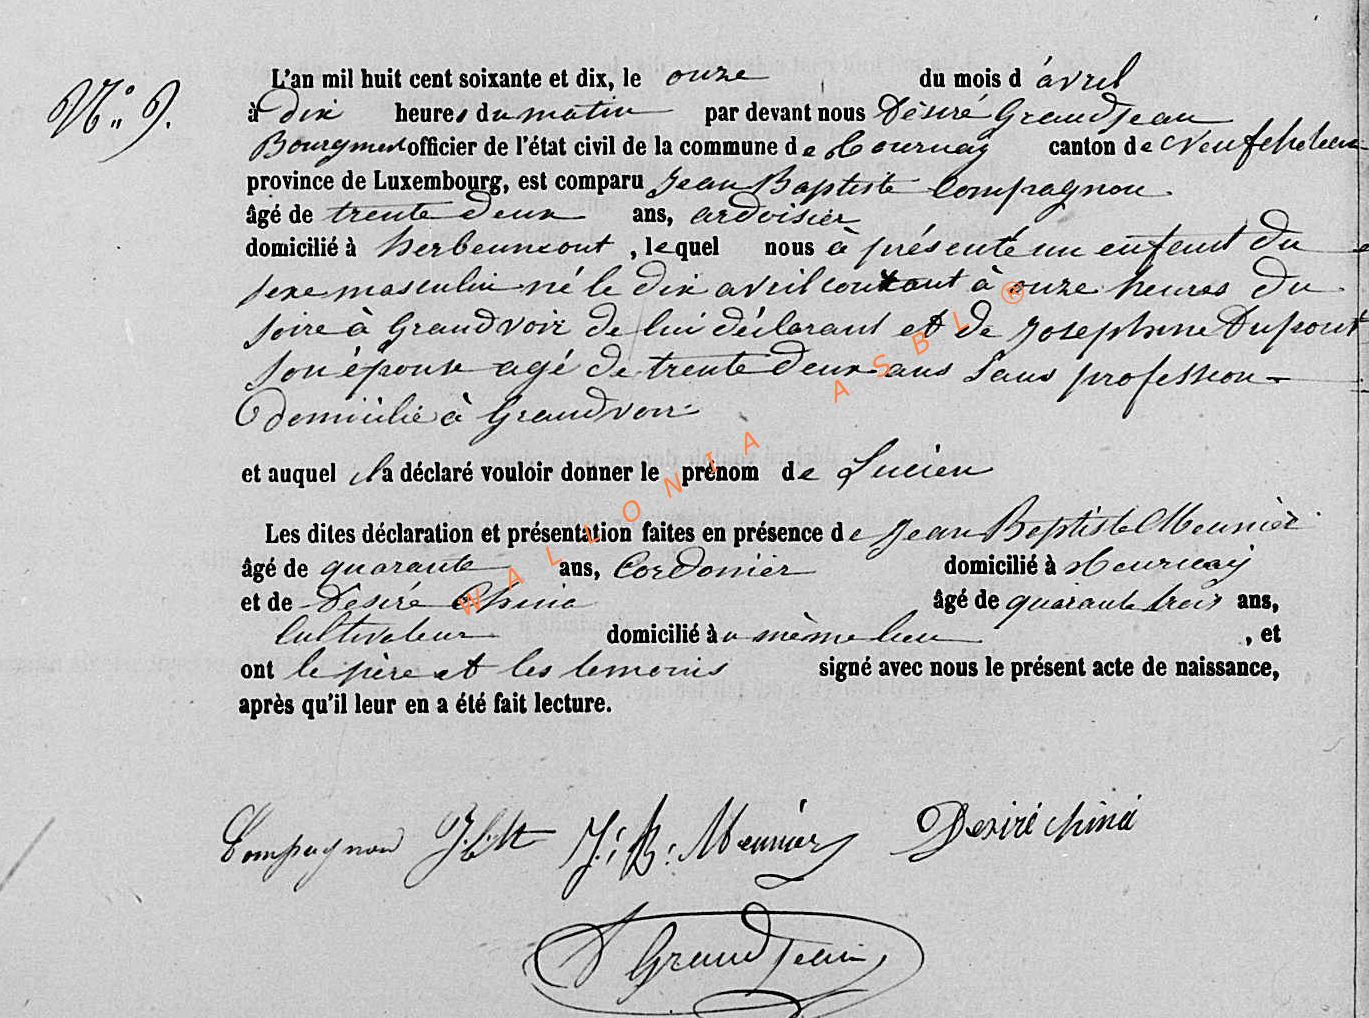 N° 9.
L'an mil huit cent soixante et dix, le onze du mois d'avril
à dix heures du matin par devant nous Désiré Grandjean
Bourgmest officier de l'état civil de la commune de Tournay canton de Neufchateau
province de Luxembourg, est comparu Jean Baptiste Compagnon
âgé de trente deux ans, ardoisier
domicilié à herbeumont, lequel nous à présenté un enfant du
sexe masculin né le dix avril courant à onze heures du
soire à Grandvoir de lui déclarant et de Josephine Dupont
son épouse agé de trente deux ans sans profession
domicilié à Grandvoir
et auquel il a déclaré vouloir donner le prénom de Lucien
Les dites déclaration et présentation faites en présence de Jean Baptiste Meunier
âgé de quarante ans, Cordonier domicilié à Tournay
et de Désiré Chiné âgé de quarante trois ans,
Cultivateur domicilié au même lieu, et
ont le père et les temoins signé avec nous le présent acte de naissance,
après qu'il leur en a été fait lecture.
Compagnon J. Bte J. B. Meunier Desiré chiné
D Grandjean
WALLONIA ASBL ®